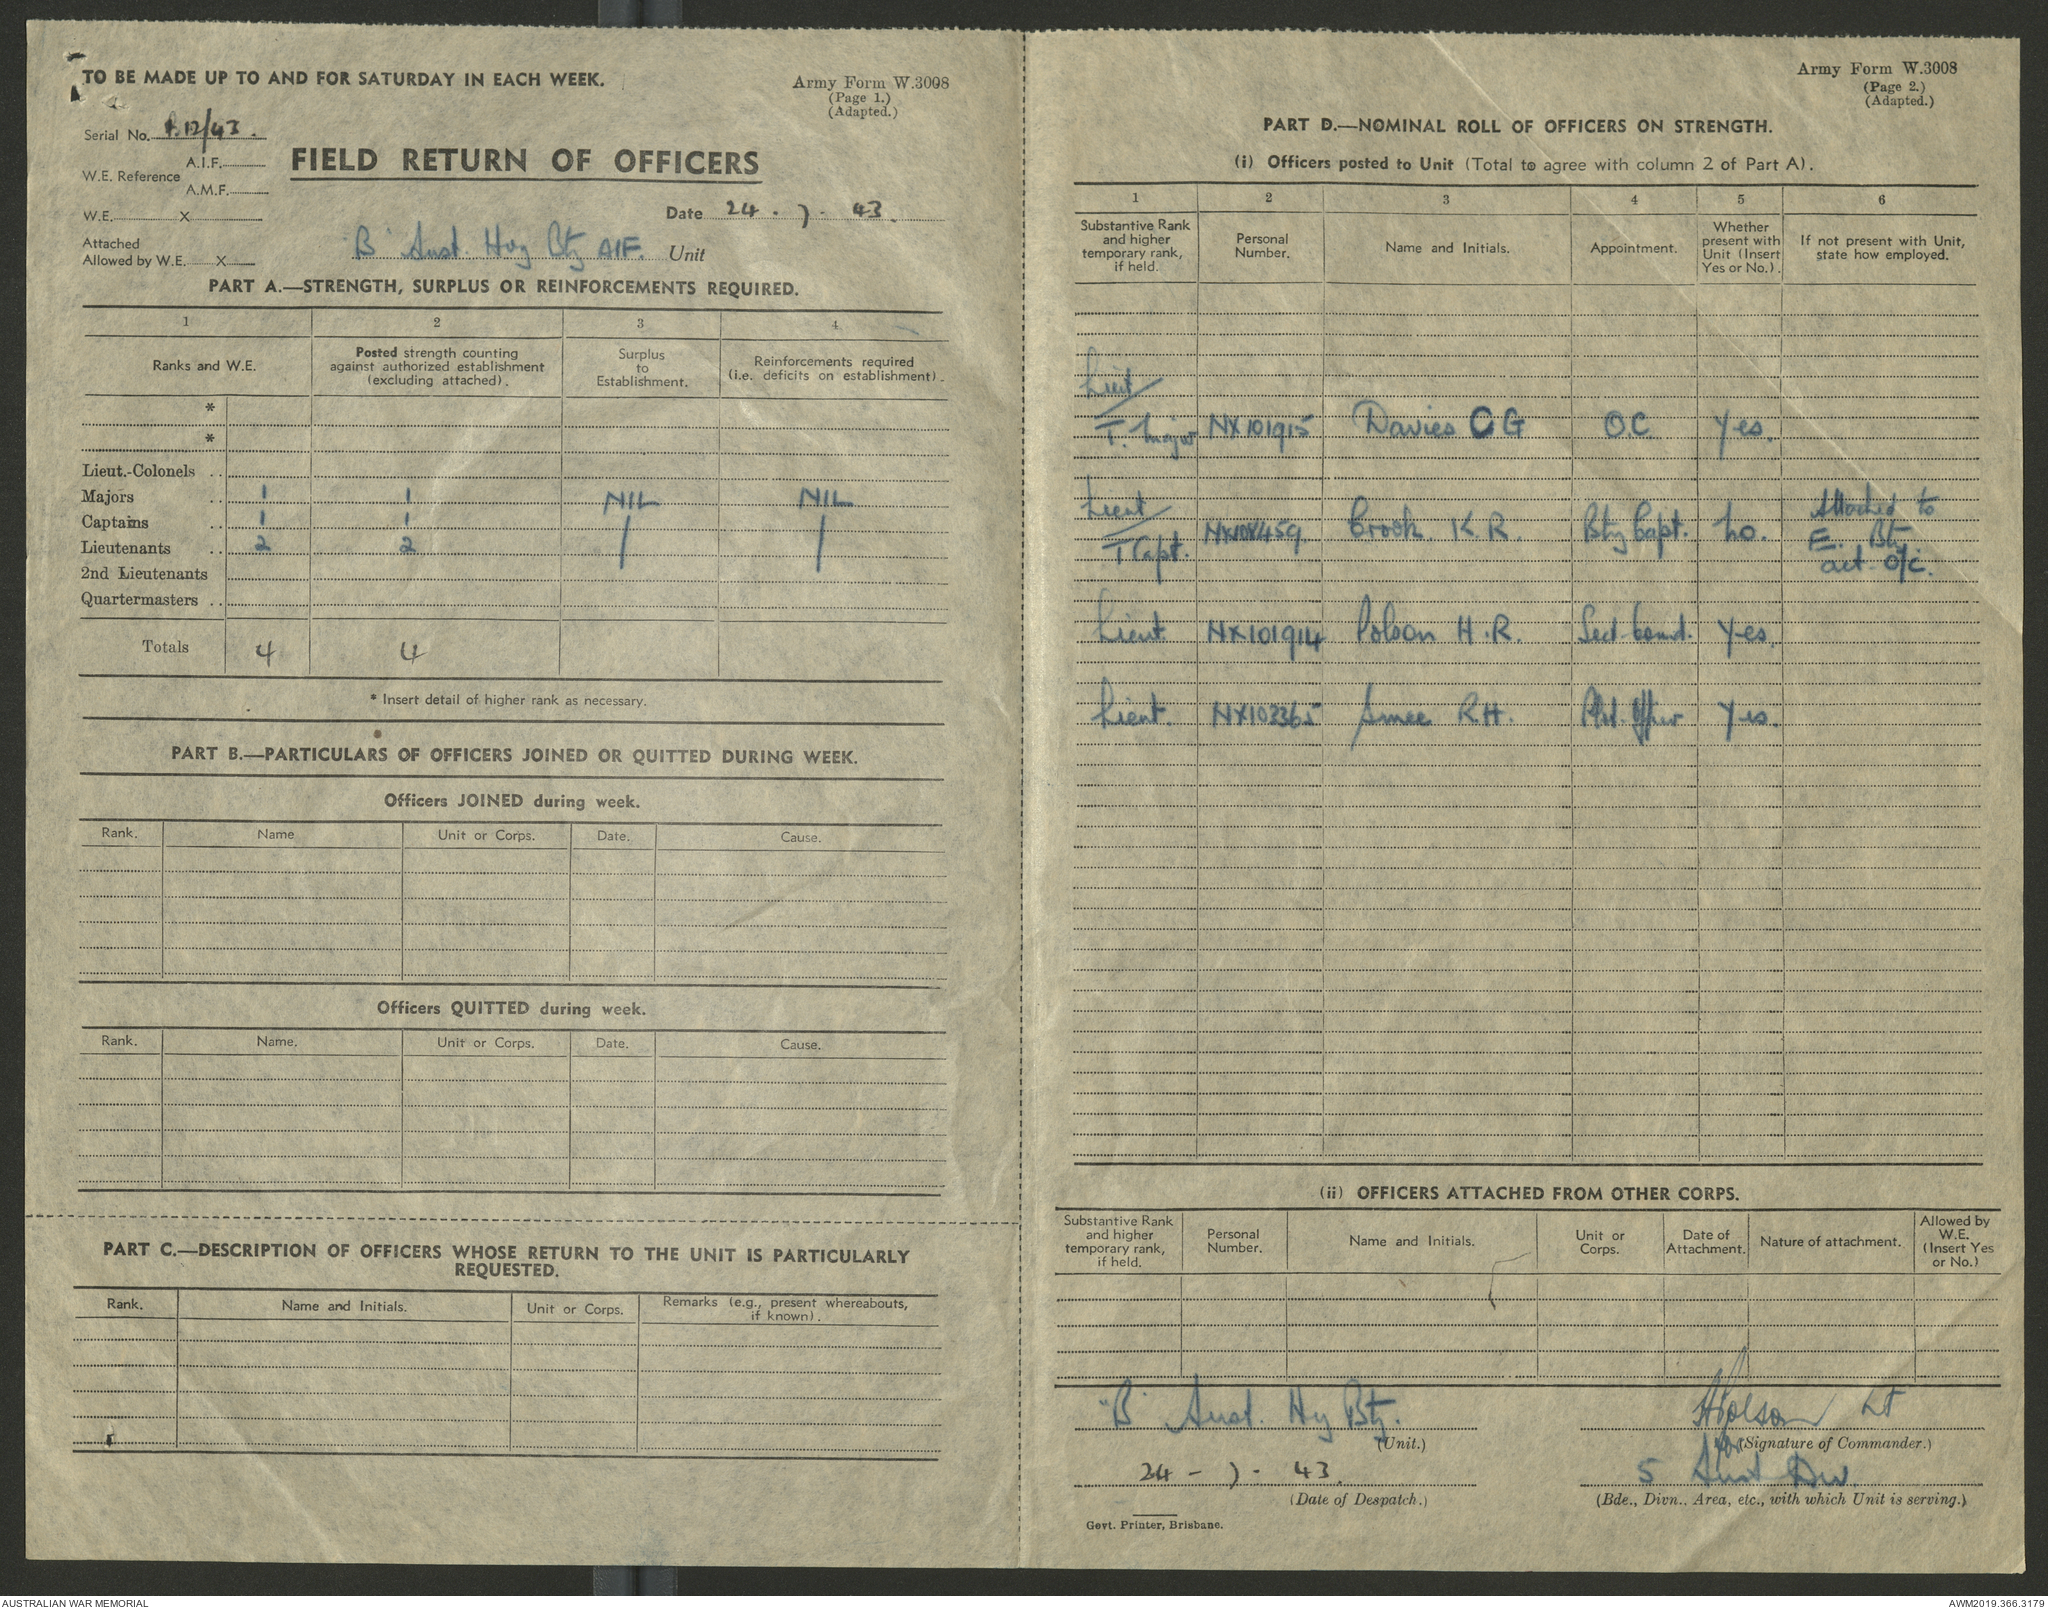 TO BE MADE UP TO AND FOR SATURDAY IN EACH WEEK.
Army Form W.3008
(Page 1.)
(Adapted.)
Serial No. 12/43.
A.I.F.
W.E. Reference
A.M.F.
FIELD RETURN OF OFFICERS
W.E. X
Date 24 - 7 - 43.
Attached
Allowed by W.E. X
"B" Aust. Hvy Bty AIF. Unit
PART A.—STRENGTH, SURPLUS OR REINFORCEMENTS REQUIRED.
1 2 3 4
Ranks and W.E.
Posted strength counting
against authorized establishment
(excluding attached).
Surplus
to
Establishment.
Reinforcements required
(i.e. deficits on establishment).
*
*
Lieut.-Colonels ..
Majors .. 1 1 NIL NIL
Captains .. 1 1
Lieutenants .. 2 2
2nd Lieutenants
Quartermasters ..
Totals 4 4
* Insert detail of higher rank as necessary.
PART B.—PARTICULARS OF OFFICERS JOINED OR QUITTED DURING WEEK.
Officers JOINED during week.
Rank. Name Unit or Corps. Date. Cause.
Officers QUITTED during week.
Rank. Name. Unit or Corps. Date. Cause.
PART C.—DESCRIPTION OF OFFICERS WHOSE RETURN TO THE UNIT IS PARTICULARLY
REQUESTED.
Rank. Name and Initials. Unit or Corps. Remarks (e.g., present whereabouts,
if known).
Army Form W.3008
(Page 2.)
(Adapted.)
PART D.—NOMINAL ROLL OF OFFICERS ON STRENGTH.
(i) Officers posted to Unit (Total to agree with column 2 of Part A).
1 2 3 4 5 6
Substantive Rank
and higher
temporary rank,
if held.
Personal
Number.
Name and Initials.
Appointment.
Whether
present with
Unit (Insert
Yes or No.).
If not present with Unit,
state how employed.
Lieut/
T. Major NX101915 Davies C G O.C. Yes.
Lieut/
T Capt. NX108459 Crook K.R. Bty Capt. No. Attached to
E. Bty
act. O/C.
Lieut. NX101914 Polson H.R. Sect. Comd. Yes.
Lieut. NX102365 Smee R.H. Yes.
(ii) OFFICERS ATTACHED FROM OTHER CORPS.
Substantive Rank
and higher
temporary rank,
if held.
Personal
Number.
Name and Initials.
Unit or
Corps.
Date of
Attachment.
Nature of attachment.
Allowed by
W.E.
(Insert Yes
or No.)
"B" Aust. Hy Bty.
(Unit.)
HPolson Lt
for (Signature of Commander.)
24 - 7 - 43.
(Date of Despatch.)
5 Aust Div.
(Bde., Divn.. Area, etc., with which Unit is serving.)
Govt. Printer, Brisbane.
AUSTRALIAN WAR MEMORIAL
AWM2019.366.3179